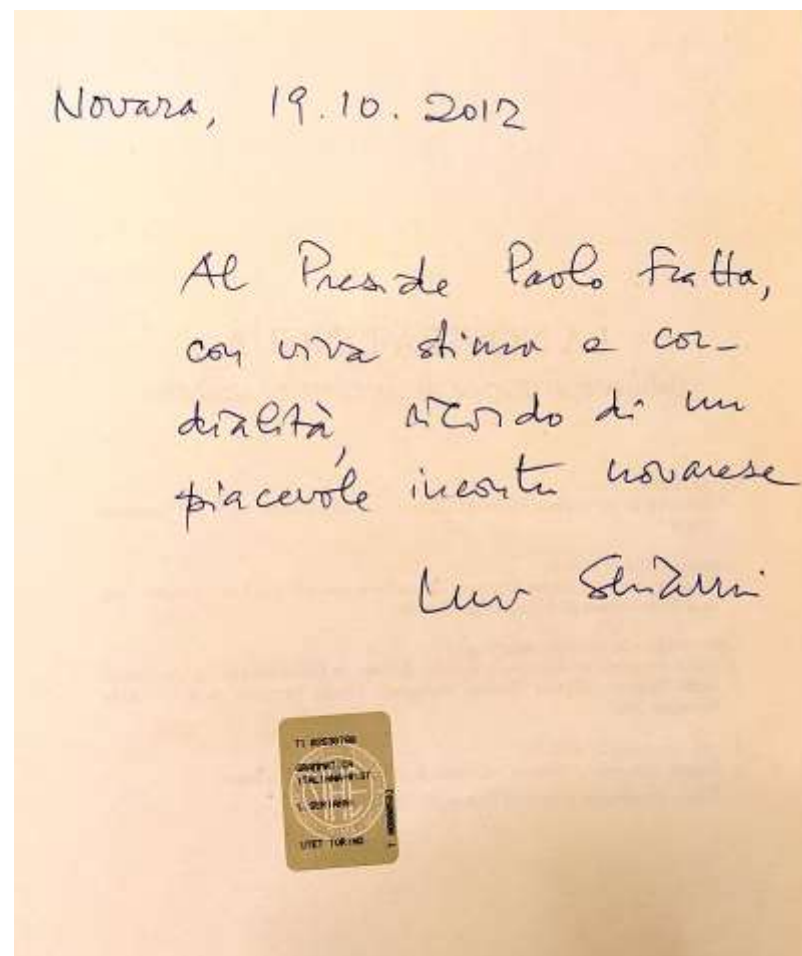 Novara, 19.10.2012
Al Preside Paolo Fratta,
con viva stima e cor-
dialità, ricordo di un
piacevole incontro novarese
Luca Serianni
GRAMMATICA
ITALIANA
UTET TORINO